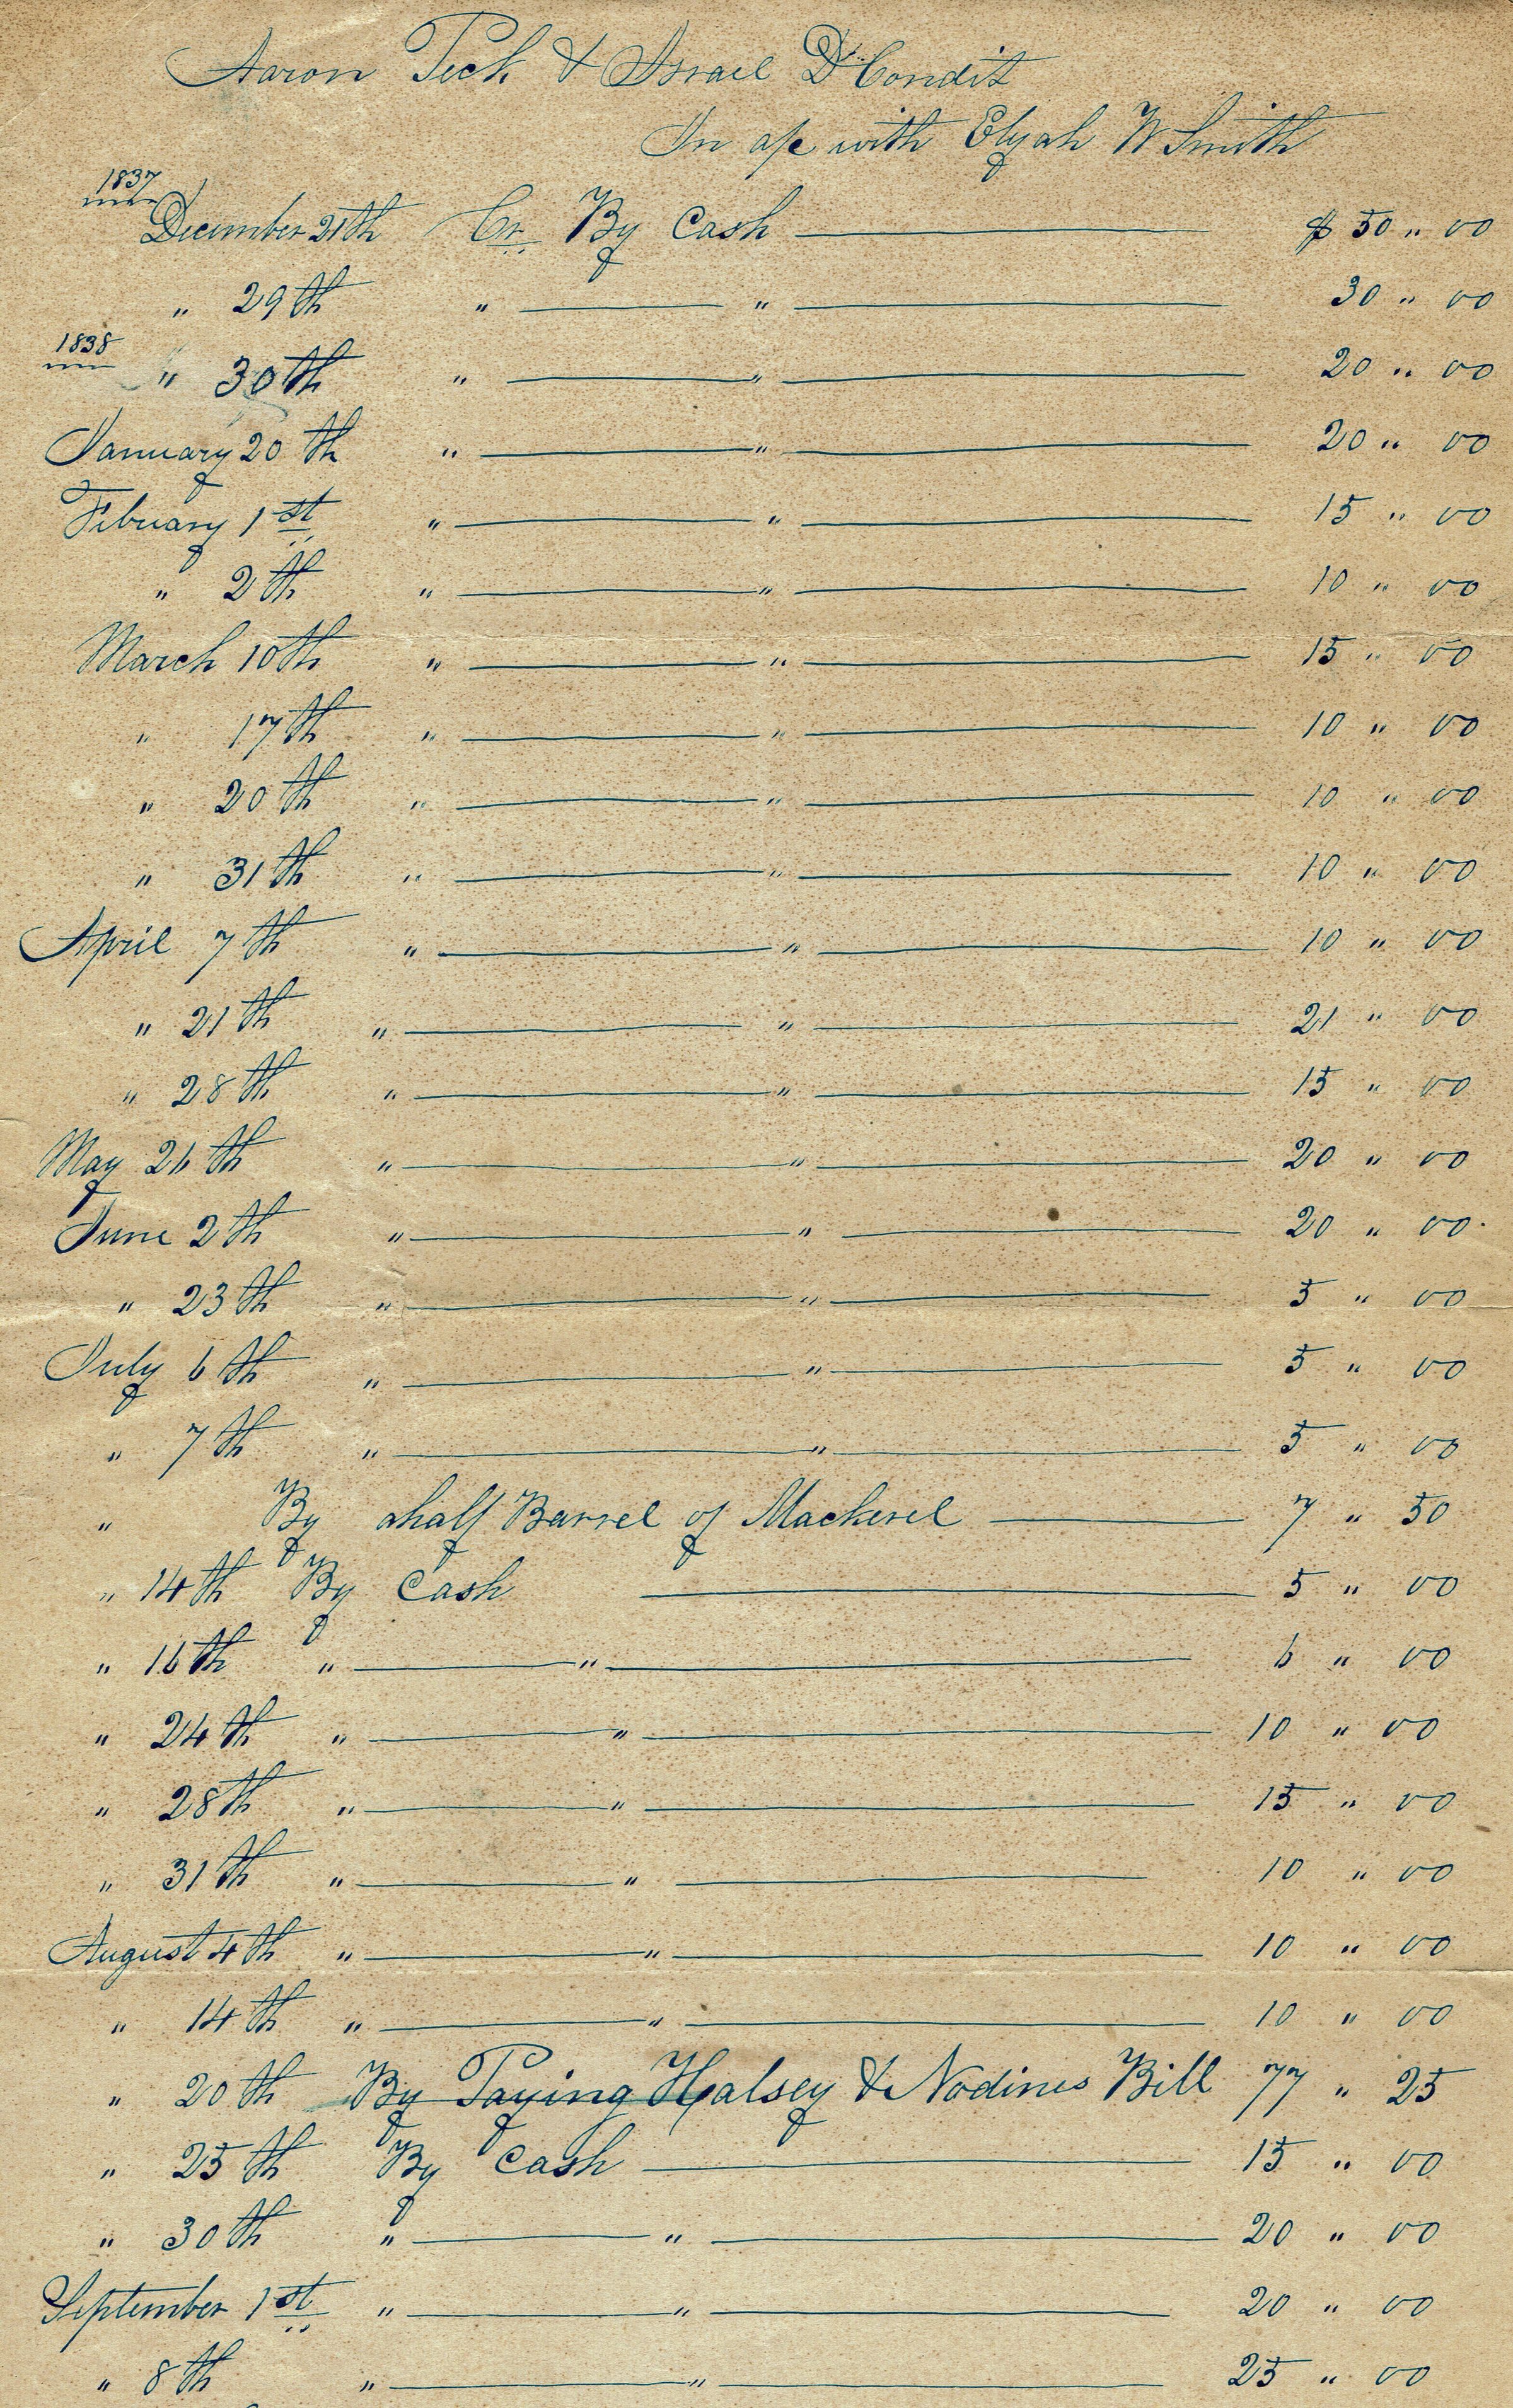 Aaron Peck & Israel D. Condit
In a/c with Elijah W Smith
1837
December 21th Cr. By Cash — $ 50 " 00
" 29th " — " — 30 " 00
1838
" 30th " — " — 20 " 00
January 20th " — " — 20 " 00
Febuary 1st " — " — 15 " 00
" 2th " — " — 10 " 00
March 10th " — " — 15 " 00
" 17th " — " — 10 " 00
" 20th " — " — 10 " 00
" 31th " — " — 10 " 00
April 7th " — " — 10 " 00
" 21th " — " — 21 " 00
" 28th " — " — 15 " 00
May 26th " — " — 20 " 00
June 2th " — " — 20 " 00
" 23th " — " — 5 " 00
July 6th " — " — 5 " 00
" 7th " — " — 5 " 00
" By ahalf Barrel of Mackerel — 7 " 50
" 14th By Cash — 5 " 00
" 16th " — " — 6 " 00
" 24th " — " — 10 " 00
" 28th " — " — 15 " 00
" 31th " — " — 10 " 00
August 4th " — " — 10 " 00
" 14th " — " — 10 " 00
" 20th By Paying Halsey & Nodines Bill 77 " 25
" 25th By Cash — 15 " 00
" 30th " — " — 20 " 00
September 1st " — " — 20 " 00
" 8th " — " — 25 " 00